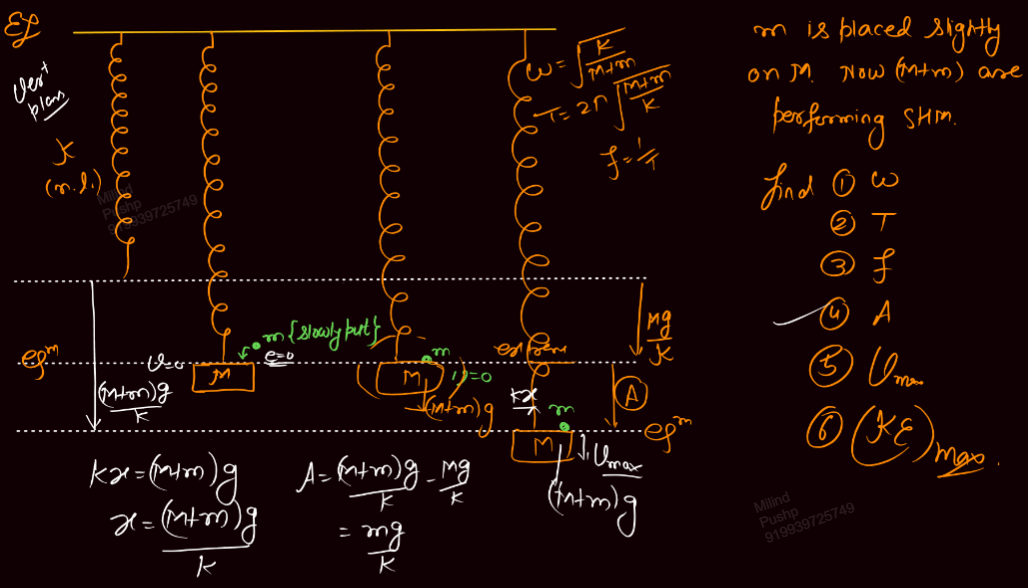 Ex
verⁿ plans
K
(n.l.)
Milind
Pushp
919939725749
ω = √K/M+m
T = 2π √M+m/K
f = 1/T
m is placed slightly
on M. Now (M+m) are
performing SHM.
find ① ω
② T
③ f
④ A
⑤ Vmax
⑥ (KE)max.
Mg/K
m {slowly put}
e=0
eqᵐ
v=0
M
m
M
v=0
(M+m)g
extreme
(M+m)g/K
Kx
m
A
eqᵐ
M
Vmax
(M+m)g
Kx = (M+m)g
x = (M+m)g/K
A = (M+m)g/K - Mg/K
= mg/K
Milind
Pushp
919939725749